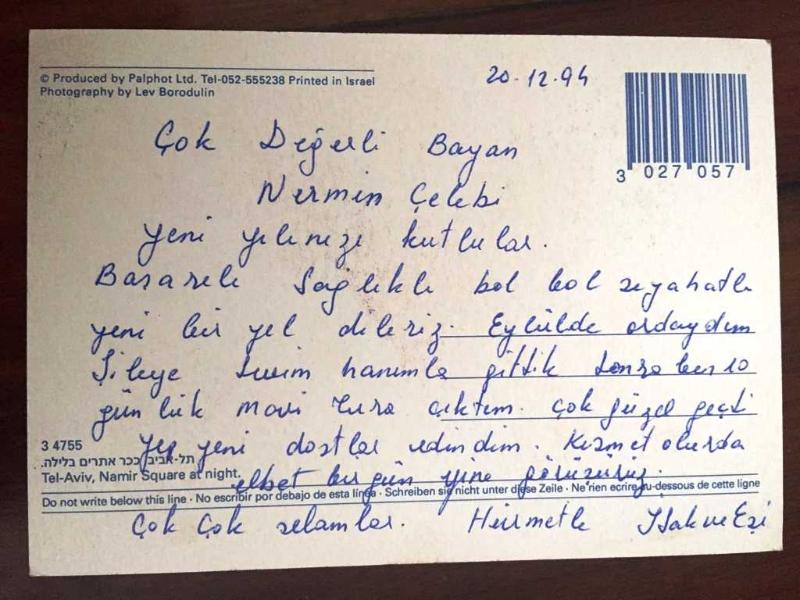 © Produced by Palphot Ltd. Tel-052-555238 Printed in Israel
Photography by Lev Borodulin
20-12-94
3 027 057
Çok Değerli Bayan
Nermin Çelebi
yeni yılınızı kutlular.
Başarılı Sağlıklı bol bol seyahatlı
yeni bir yıl dileriz. Eylülde ordaydım
Şileye hanımla gittik sonra ben 10
gün lük mavi tura çıktım. çok güzel geçti
yep yeni dostlar edindim. Kısmet olursa
3 4755
תל-אביב, ככר אתרים בלילה.
Tel-Aviv, Namir Square at night.
elbet bir gün yine görüşürüz.
Do not write below this line · No escribir por debajo de esta línea · Schreiben sie nicht unter diese Zeile · Ne rien ecrire au-dessous de cette ligne
Çok Çok selamlar. Hürmetle